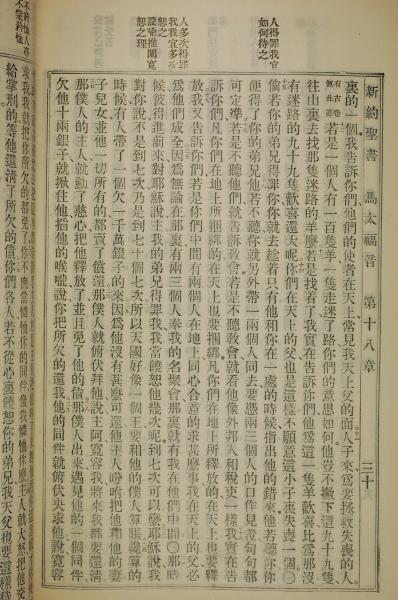 新約聖書 馬太福音 第十八章 三十
裏的一個我告訴你們他們的使者在天上常見我天上父的面人子來爲要拯救失喪的人
有古卷無此節若是一個人有一百隻羊一隻走迷了路你們的意思如何他豈不撇下這九十九隻
往山裏去找那隻迷路的羊麼若是找着了我實在告訴你們他爲這一隻羊歡喜比爲那沒
有迷路的九十九隻歡喜還大呢你們在天上的父也是這樣不願意這小子裏失喪一個〇
人得罪我宜如何待之
倘若你的弟兄得罪你你就去趁着只有他和你在一處的時候指出他的錯來他若聽你
便得了你的弟兄他若不聽你就另外帶一兩個人同去要憑兩三個人的口作見證句句都
可定準若是不聽他們就告訴教會若是不聽教會就看他像外邦人和稅吏一樣我實在告
訴你們凡你們在地上所捆綁的在天上也要捆綁凡你們在地上所釋放的在天上也要釋
放我又告訴你們若是你們中間有兩個人在地上同心合意的求甚麼事我在天上的父必
爲他們成全因爲無論在那裏有兩三個人奉我的名聚會那裏就有我在他們中間〇那時
人多次得罪我我宜多次恕之
候彼得進前來對耶穌說主我的弟兄得罪我我當饒恕他幾次呢到七次可以麼耶穌說我
設喩推闡寬恕之理
對你說不是到七次乃是到七十個七次所以天國好像一個王要和他的僕人算賬纔算的
時候有人帶了一個欠一千萬銀子的來因爲他沒有甚麼可還他主人吩咐把他和他的妻
子兒女並他一切所有的都賣了償還那僕人就俯伏拜他說主阿寬容我將來我都要還清
那僕人的主人就動了慈心把他釋放了並且免了他的債那僕人出來遇見他的一個同伴
欠他十兩銀子就揪住他掐他的喉嚨說你把所欠的還我他的同伴就俯伏央求他說寬容
求我我就把你所欠的都免了你不應當憐恤你的同伴像我憐恤你麼主人就大怒把他交
給掌刑的等他還清了所欠的債你們各人若不從心裏饒恕你的弟兄我天父也要這樣待